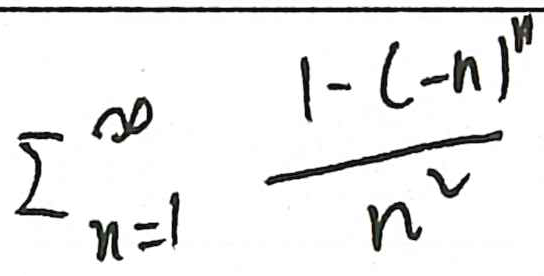 ∑_{n=1}^{∞} \frac{1-(-n)^n}{n^2}